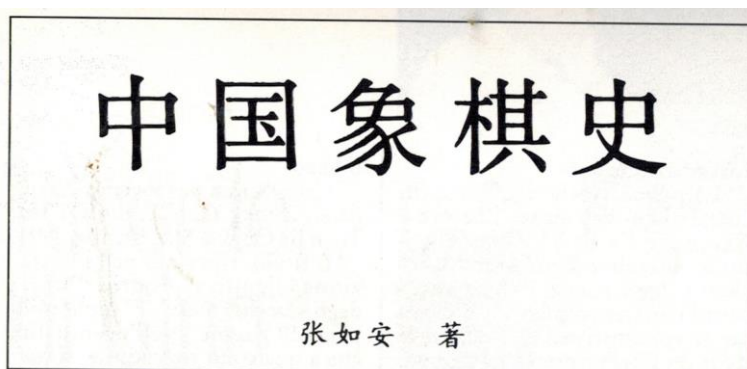 中国象棋史
张如安 著